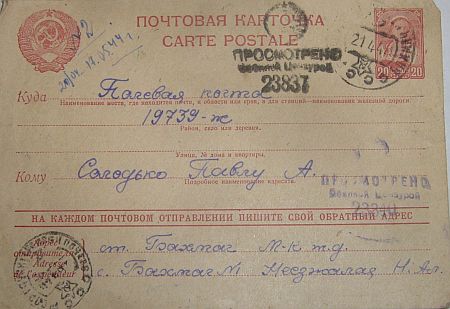 ПОЧТОВАЯ КАРТОЧКА
CARTE POSTALE
ПРОСМОТРЕНО
Военной Цензурой
23837
20 20
Куда Полевая почта
Наименование места, где находится почта, и области или края, а для станций—наименование железной дороги
19739-ж
Район, село или деревня.
Улица, № дома и квартиры.
Кому Солодько Павлу А.
Подробное наименование адресата.
ПРОСМОТРЕНО
Военной Цензурой
НА КАЖДОМ ПОЧТОВОМ ОТПРАВЛЕНИИ ПИШИТЕ СВОЙ ОБРАТНЫЙ АДРЕС
Адрес отправителя
Adresse de l'expéditeur
ст. Бахмач М-К ж.д.
с. Бахмач Н. Ал.